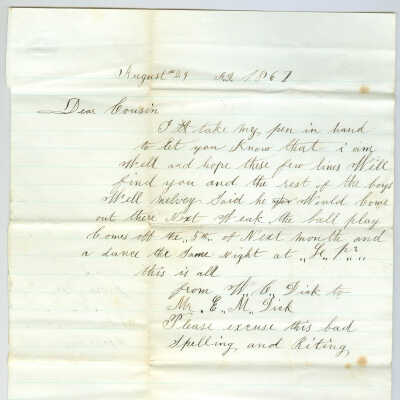 August 29 AD 1867
Dear Cousin
I take my pen in hand
to let you Know that i am
Well and hope these few lines Will
find you and the rest of the boys
Well melvey Said he Would Come
out there Next Weak the ball play
Comes off the "5th" of Next month and
a dance the Same Night at
this is all
from W. C. Dick to
Mr. E. M. Dick
Please excuse this bad
Spelling and Riting